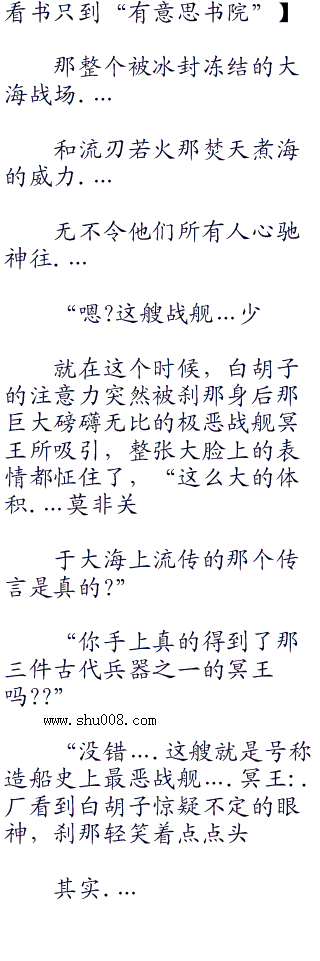 看书只到“有意思书院”】
那整个被冰封冻结的大
海战场....
和流刃若火那焚天煮海
的威力....
无不令他们所有人心驰
神往....
“嗯?这艘战舰...少
就在这个时候，白胡子
的注意力突然被刹那身后那
巨大磅礴无比的极恶战舰冥
王所吸引，整张大脸上的表
情都怔住了，“这么大的体
积....莫非关
于大海上流传的那个传
言是真的?”
“你手上真的得到了那
三件古代兵器之一的冥王
吗??”
www.shu008.com
“没错....这艘就是号称
造船史上最恶战舰....冥王:.
厂看到白胡子惊疑不定的眼
神，刹那轻笑着点点头
其实....